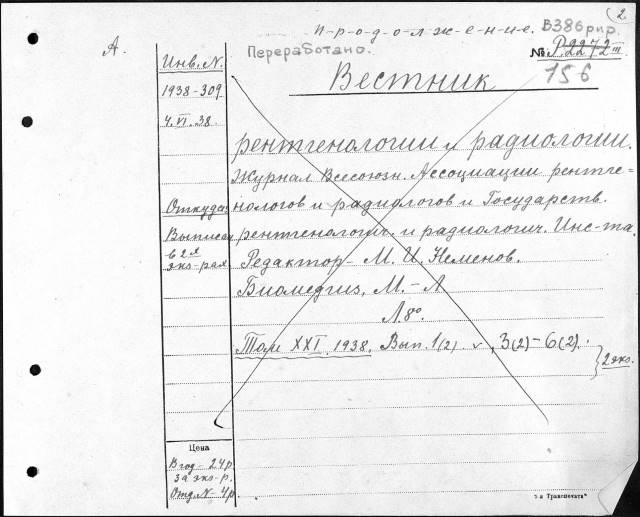 2
п-р-о-д-о-л-ж-е-н-и-е.
В386рир.
А.
Переработано.
№ Р.2272 III
156
Инв. N.
Вестник
1938-309
4.VI.38.
рентгенологии и радиологии.
Журнал Всесоюзн. Ассоциации рентге=
Откуда:
нологов и радиологов и Государств.
Выписан
рентгенологич. и радиологич. Инс-та.
в 2 я
экз-рах
Редактор - М. И. Неменов.
Биомедгиз, М.-Л
Л. 8º.
Том XXI. 1938. Вып. 1(2). ✓, 3(2)-6(2).
} 2 экз.
Цена
В год - 24 р.
за экз-р.
Отд. N - 4 р.
т-а Транспечати